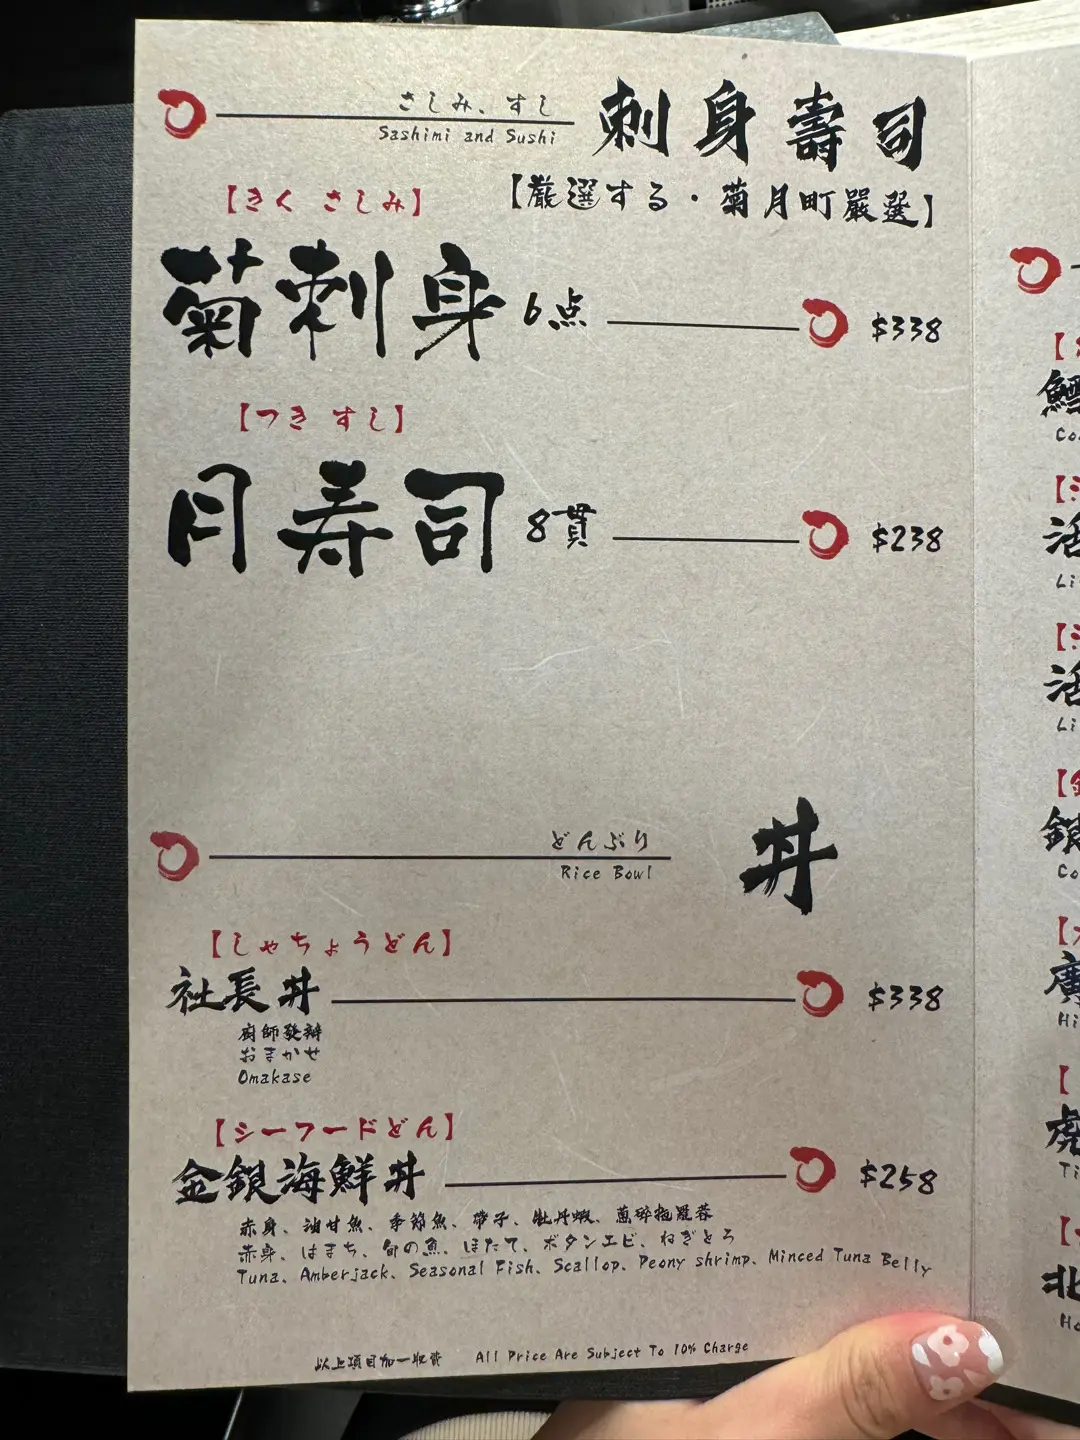 さしみ、すし
Sashimi and Sushi
刺身壽司
【厳選する・菊月町嚴選】
【きく さしみ】
菊刺身 6点 $338
【つき すし】
月寿司 8貫 $238
どんぶり
Rice Bowl
丼
【しゃちょうどん】
社長丼 $338
廚師發辦
おまかせ
Omakase
【シーフードどん】
金鎖海鮮丼 $258
赤身、油甘魚、季節魚、帶子、牡丹蝦、蔥碎拖羅蓉
赤身、はまち、旬の魚、ほたて、ボタンエビ、ねぎとろ
Tuna、Amberjack、Seasonal Fish、Scallop、Peony shrimp、Minced Tuna Belly
以上項目加一收費 All Price Are Subject To 10% Charge
活
Li
活
Li
Co
Hi
Ti
北